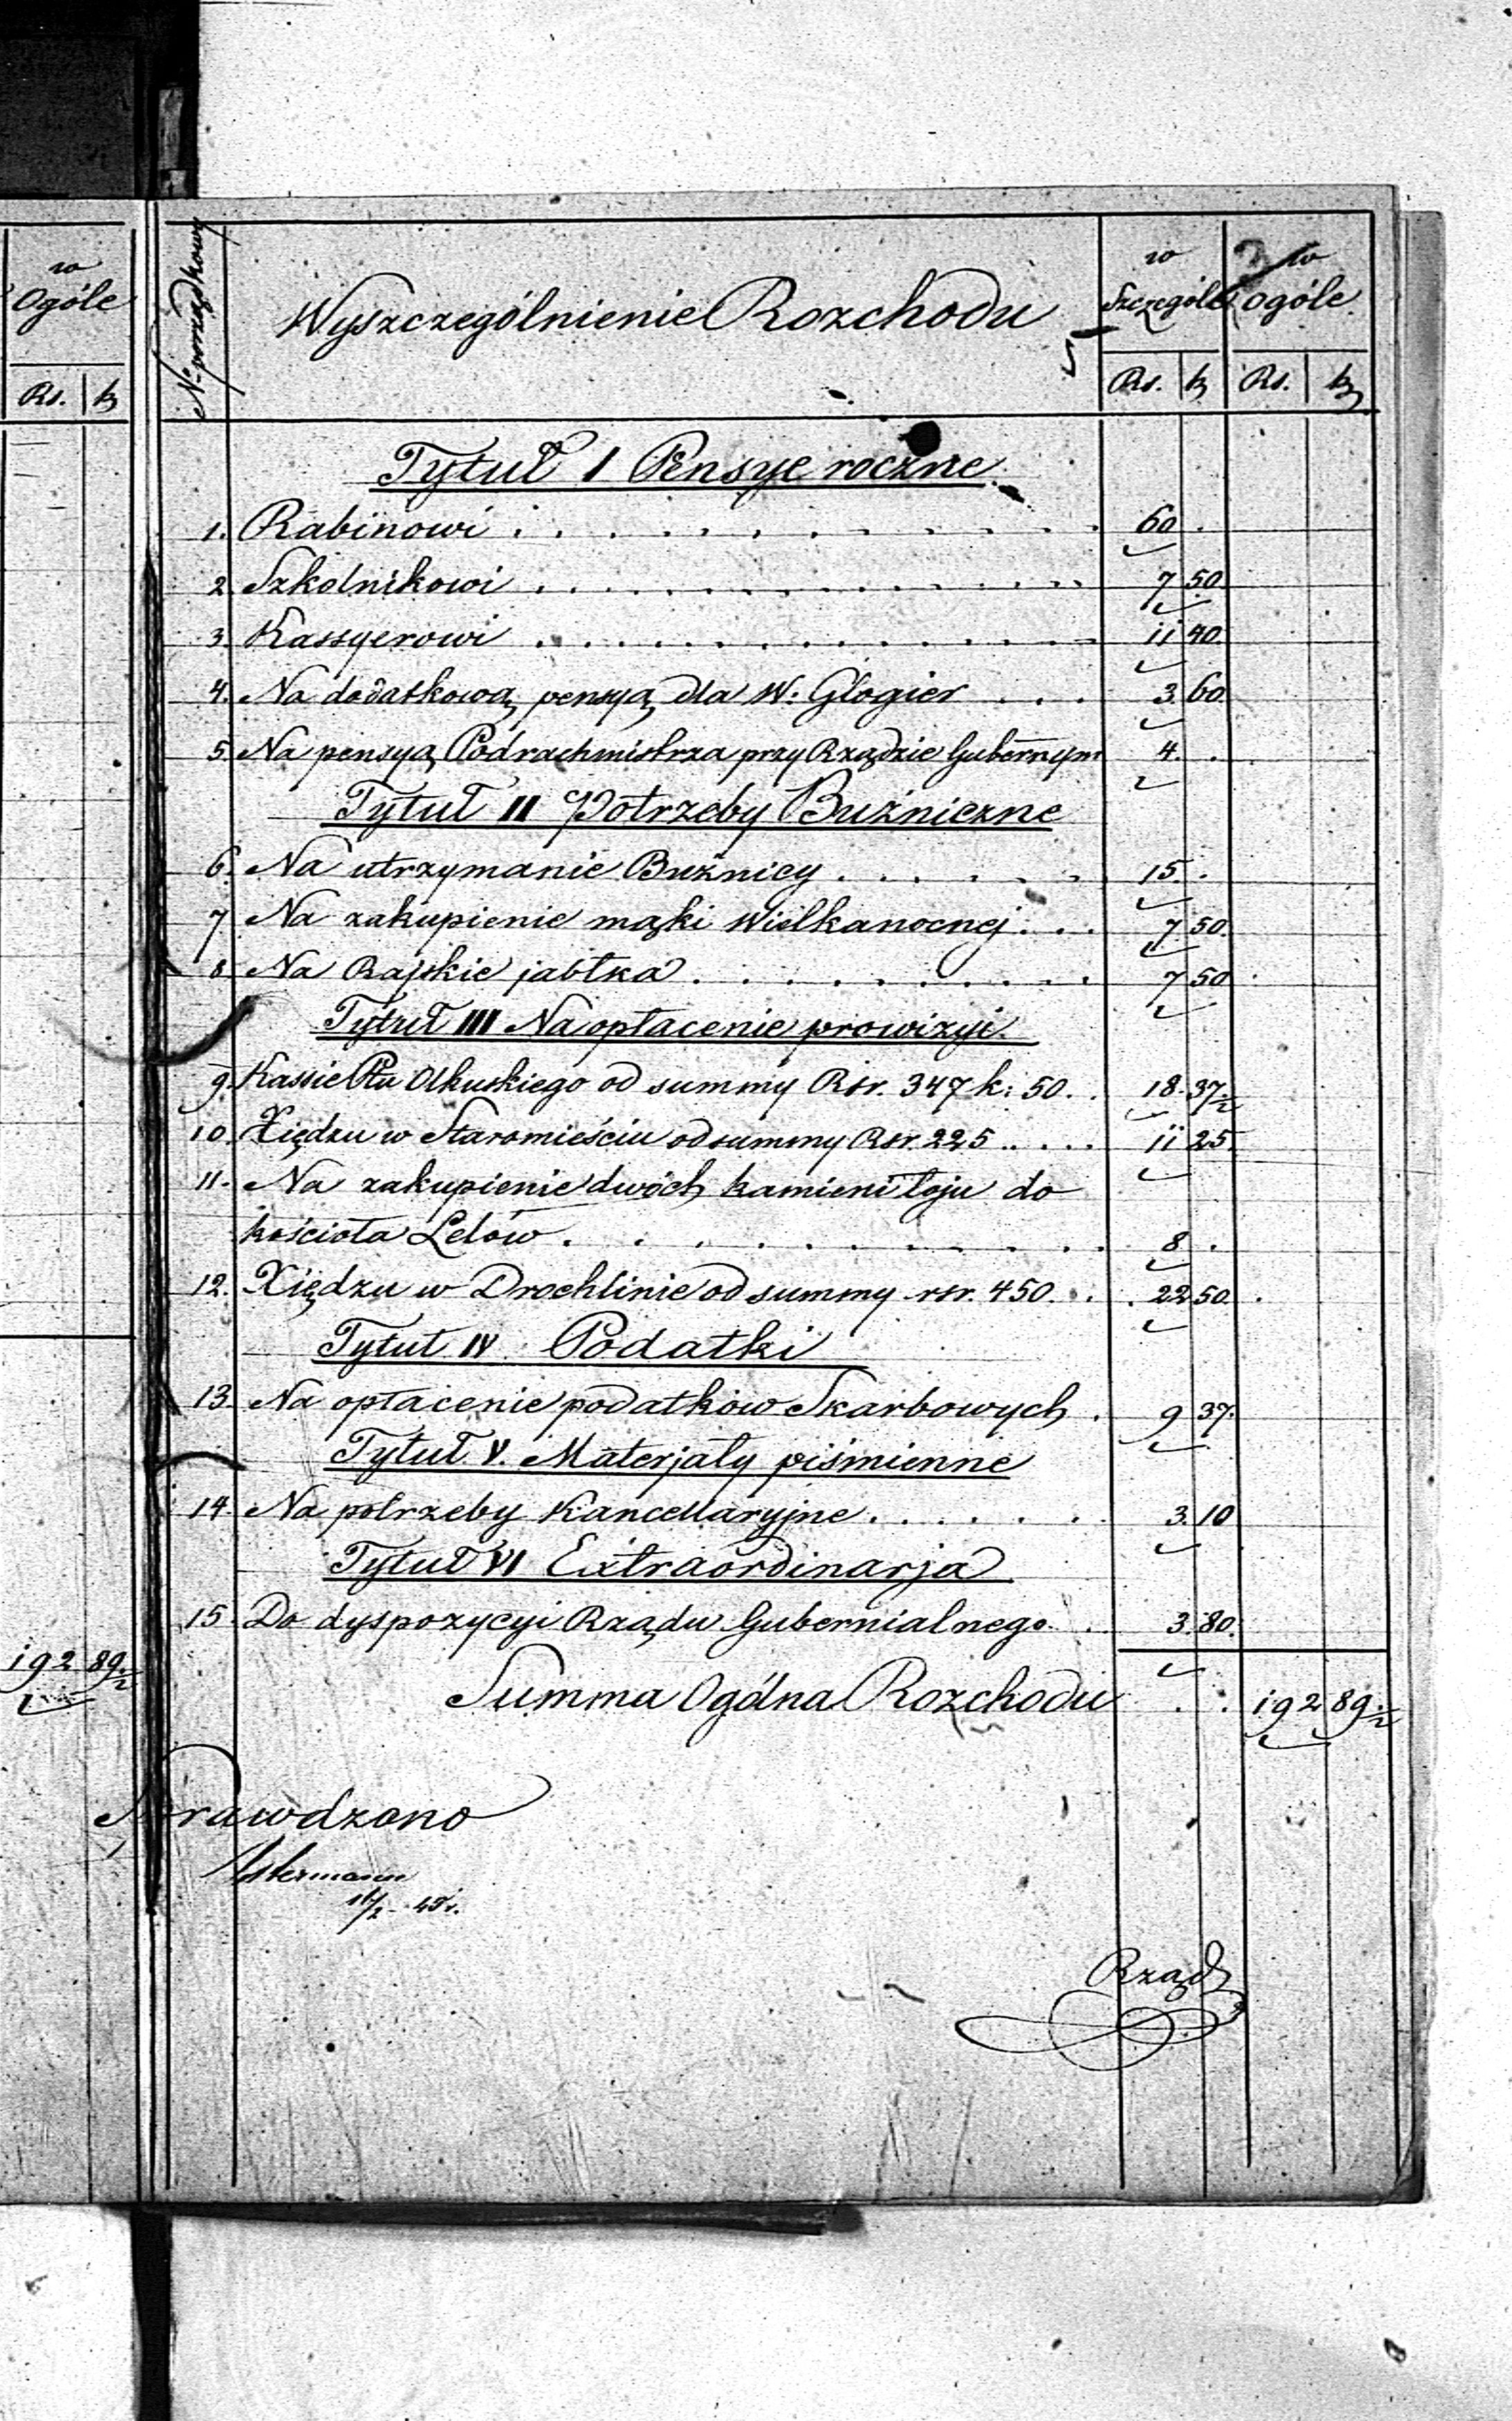 w
Ogóle
Rs. k
192 89½
No porządkowy
Wyszczególnienie Rozchodu
w
Szczególe
w
ogóle
Rs. k
Rs. k
Tytuł I Pensye roczne
1. Rabinowi . . . 60 .
2. Szkolnikowi . . . 7 50
3. Kassyerowi . . . 11 40
4. Na dodatkową pensyą dla W: Glogier . . . 3 60
5. Na pensyą Podrachmistrza przy Rządzie Gubernym 4 .
Tytuł II Potrzeby Buźniczne
6. Na utrzymanie Buźnicy . . . 15 .
7 Na zakupienie mąki Wielkanocnej . . . 7 50
8 Na Rajskie jabłka . . . 7 50
Tytuł III Na opłacenie prowizyi.
9. Kassie Ptu Olkuskiego od summy Rsr. 347 k: 50 . . 18 37½
10. Xiędzu w Staromieściu od summy Rsr. 225 . . . 11 25
11. Na zakupienie dwóch kamieni łoju do
kościoła Lelów . . . 8 .
12. Xiędzu w Drochlinie od summy rsr. 450 . . 22 50
Tytuł IV. Podatki
13. Na opłacenie podatków Skarbowych . 9 37
Tytuł V. Materjały piśmienne
14. Na potrzeby Kancellaryjne . . . 3 10
Tytuł VI Extraordinarja
15. Do dyspozycyi Rządu Gubernialnego . . 3 80
Summa Ogólna Rozchodu . . 192 89½
Sprawdzono
Rząd